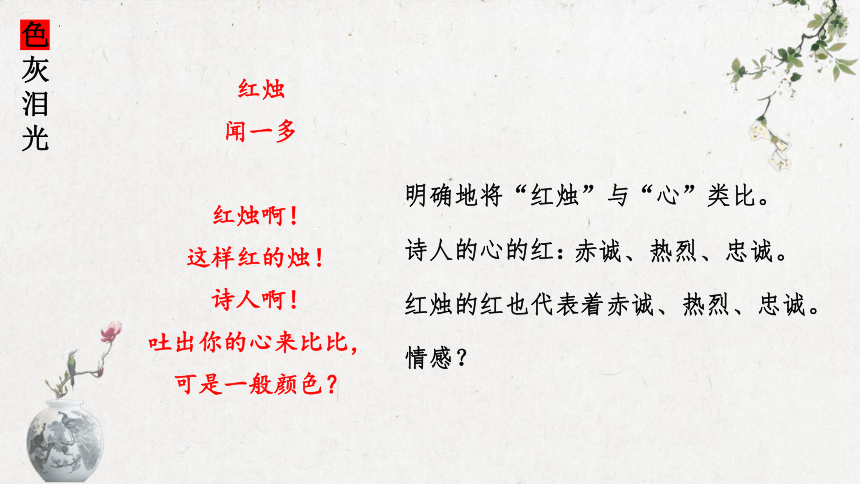 色灰泪光
红烛
闻一多
红烛啊！
这样红的烛！
诗人啊！
吐出你的心来比比，
可是一般颜色？
明确地将“红烛”与“心”类比。
诗人的心的红：赤诚、热烈、忠诚。
红烛的红也代表着赤诚、热烈、忠诚。
情感？